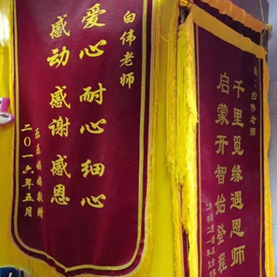 白伟老师
爱心 耐心 细心
感动 感谢 感恩
二〇一六年五月
白伟老师
千里见缘遇恩师
启蒙开智始登程